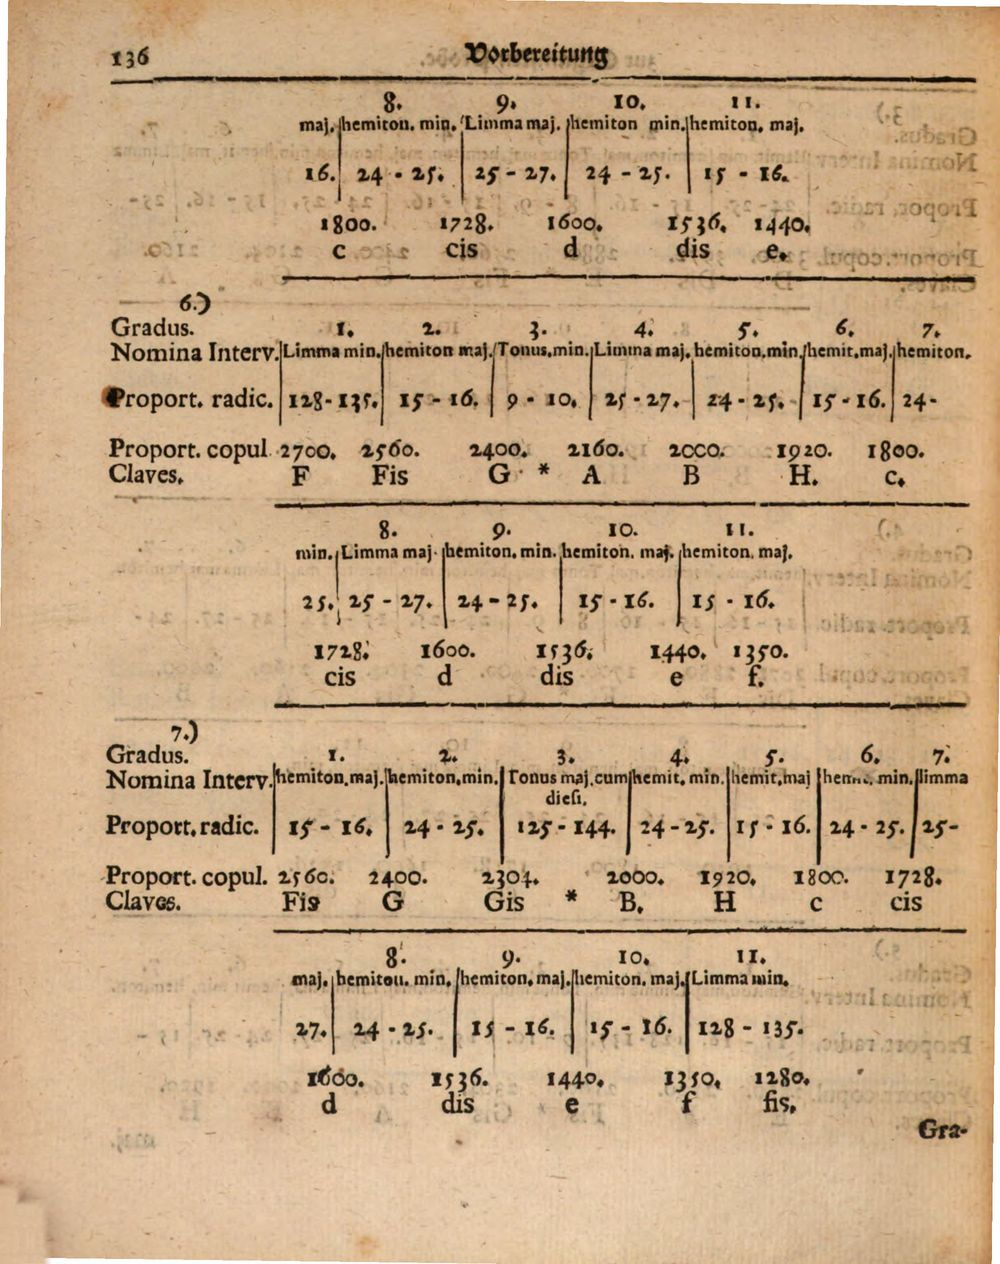 136 Vorbereitung
8. 9. 10. 11.
maj. hemiton. min. Limma maj. hemiton min. hemiton. maj.
16. 24 - 25. 25 - 27. 24 - 25. 15 - 16.
1800. 1728. 1600. 1536. 1440.
c cis d dis e.
6.)
Gradus. 1. 2. 3. 4. 5. 6. 7.
Nomina Interv. Limma min. hemiton maj. Tonus.min. Limma maj. hemiton.min. hemit.maj. hemiton.
Proport. radic. 128-135. 15 - 16. 9 - 10. 25 - 27. 24 - 25. 15 - 16. 24-
Proport. copul 2700. 2560. 2400. 2160. 2000. 1920. 1800.
Claves. F Fis G * A B H. c.
8. 9. 10. 11.
min. Limma maj. hemiton. min. hemiton. maj. hemiton. maj.
25. 25 - 27. 24 - 25. 15 - 16. 15 - 16.
1728. 1600. 1536. 1440. 1350.
cis d dis e f.
7.)
Gradus. 1. 2. 3. 4. 5. 6. 7.
Nomina Interv. hemiton.maj. hemiton.min. Tonus maj.cum hemit. min. hemit.maj hemit. min. limma
diesi.
Proport.radic. 15 - 16. 24 - 25. 125 - 144. 24 - 25. 15 - 16. 24 - 25. 25-
Proport. copul. 2560. 2400. 2304. 2000. 1920. 1800. 1728.
Claves. Fis G Gis * B. H c cis
8. 9. 10. 11.
maj. hemiton. min. hemiton. maj. hemiton. maj. Limma min.
27. 24 - 25. 15 - 16. 15 - 16. 128 - 135.
1600. 1536. 1440. 1350. 1280.
d dis e f fis.
Gra-